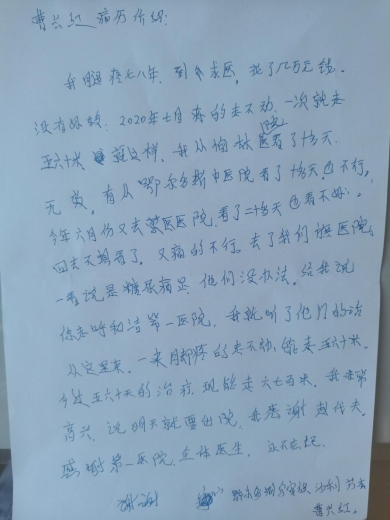 曹兴红 病历介绍:
我腿疼七八年,到处求医,花了几万元钱。
没有好转,2020年七月疼的走不动,一次就走
五六十米 就这样,我从榆林医院看了十多天
无效,有从鄂尔多斯中医院看了十多天也不行。
今年六月份又去蒙医医院,看了二十多天也看不好。
回去不想看了,又痛的不行。去了我们旗医院,
一看说是糖尿病足,他们没办法。给我说
你去呼和浩第一医院,我就听了他们的话
从这里来。一来月脚疼的走不动,能走五六十米。
今过五六十天的治疗,现能走六七百米,我非常
高兴,说明天就要出院,我感谢赵代夫,
感谢第一医院,全体医生,永不忘记。
谢谢 鄂尔多斯
曹兴红。